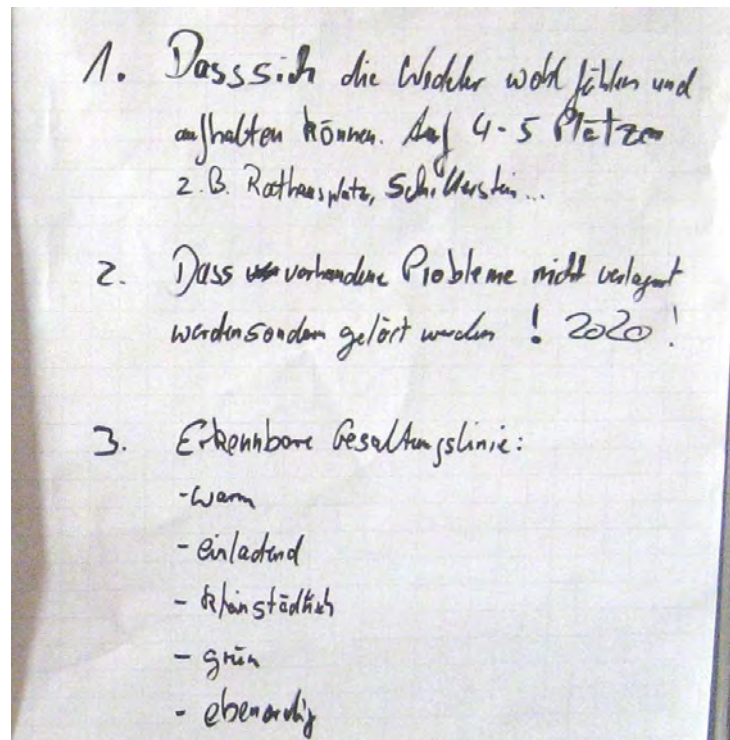 1. Dass sich die Wedeler wohl fühlen und
aufhalten können. Auf 4-5 Plätzen
z.B. Rathausplatz, Schillerstein...
2. Dass vorhandene Probleme nicht verlagert
werden sondern gelöst werden ! 2020 !
3. Erkennbare Gesaltungslinie:
- warm
- einladend
- kleinstädtisch
- grün
- ebenerdig